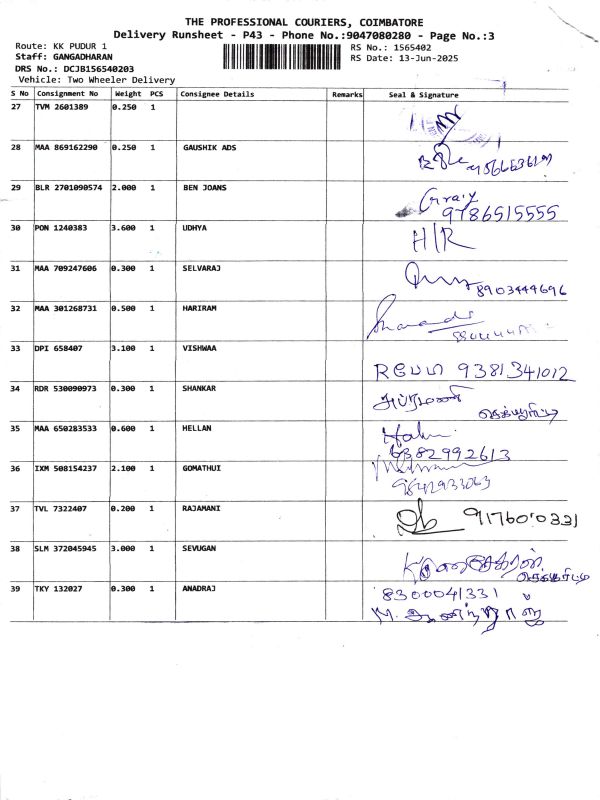 THE PROFESSIONAL COURIERS, COIMBATORE
Delivery Runsheet - P43 - Phone No.:9047080280 - Page No.:3
Route: KK PUDUR 1 RS No.: 1565402
Staff: GANGADHARAN RS Date: 13-Jun-2025
DRS No.: DCJB156540203
Vehicle: Two Wheeler Delivery
S No Consignment No Weight PCS Consignee Details Remarks Seal & Signature
27 TVM 2601389 0.250 1
28 MAA 869162290 0.250 1 GAUSHIK ADS
29 BLR 2701090574 2.000 1 BEN JOANS
9786515555
30 PON 1240383 3.600 1 UDHYA H/R
31 MAA 709247606 0.300 1 SELVARAJ
8903444696
32 MAA 301268731 0.500 1 HARIRAM
33 DPI 658407 3.100 1 VISHWAA
9381341012
34 RDR 530090973 0.300 1 SHANKAR
35 MAA 650283533 0.600 1 HELLAN
6382992613
36 IXM 508154237 2.100 1 GOMATHUI
9842933063
37 TVL 7322407 0.200 1 RAJAMANI
38 SLM 372045945 3.000 1 SEVUGAN
39 TKY 132027 0.300 1 ANADRAJ 8300041331